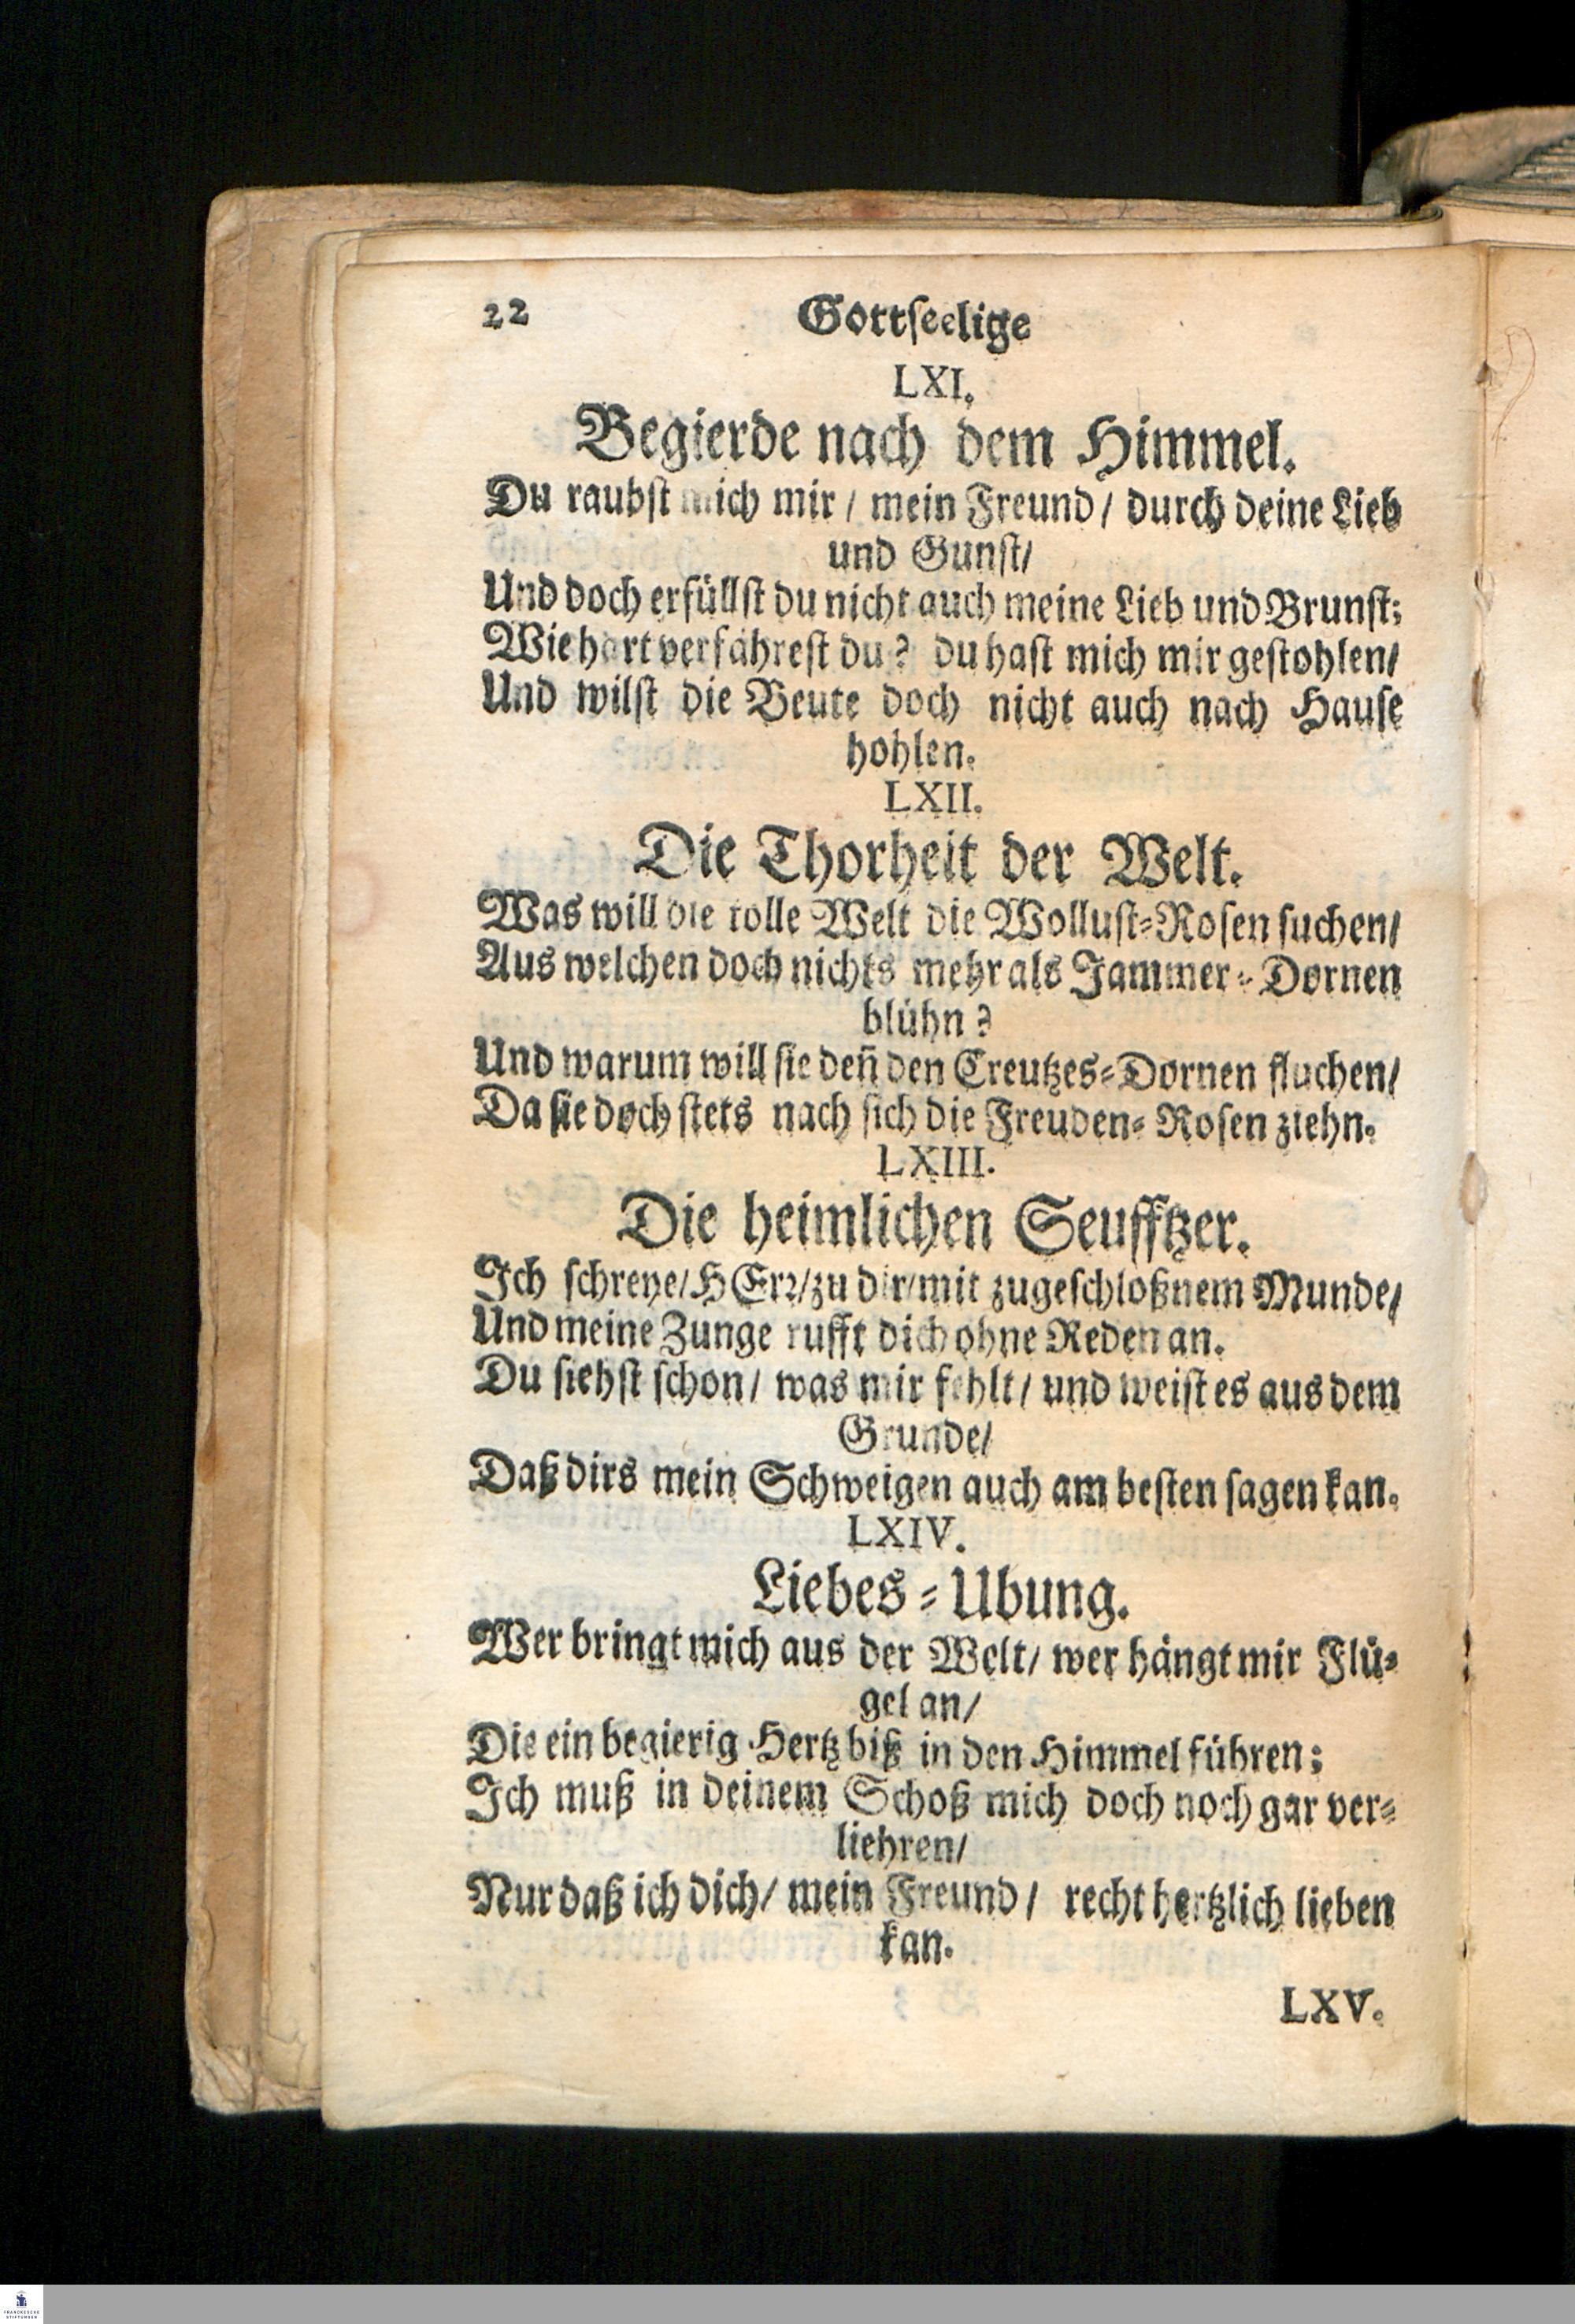 22 Gottſeelige
LXI.
Begierde nach dem Himmel.
Du raubſt mich mir / mein Freund / durch deine Lieb
und Gunſt/
Und doch erfüllſt du nicht auch meine Lieb und Brunſt;
Wie hart verfährest du? du haſt mich mir geſtohlen/
Und wilſt die Beute doch nicht auch nach Hauſe
hohlen.
LXII.
Die Thorheit der Welt.
Was will die tolle Welt die Wolluſt-Roſen ſuchen/
Aus welchen doch nichts mehr als Jammer-Dornen
blühn?
Und warum will ſie deñ den Creutzes-Dornen fluchen/
Da ſie doch ſtets nach ſich die Freuden-Roſen ziehn.
LXIII.
Die heimlichen Seufftzer.
Ich ſchreye/HErꝛ/zu dir/mit zugeſchloßnem Munde/
Und meine Zunge rufft dich ohne Reden an.
Du ſiehſt ſchon/ was mir fehlt/ und weiſt es aus dem
Grunde/
Daß dirs mein Schweigen auch am beſten ſagen kan.
LXIV.
Liebes-Ubung.
Wer bringt mich aus der Welt/ wer hängt mir Flü-
gel an/
Die ein begierig Hertz biß in den Himmel führen;
Ich muß in deinem Schoß mich doch noch gar ver-
liehren/
Nur daß ich dich/ mein Freund / recht hertzlich lieben
kan.
LXV.
FRANCKESCHE
STIFTUNGEN